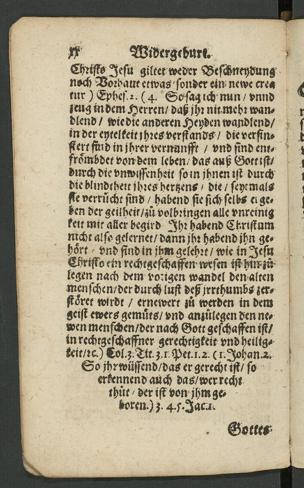 xx Widergeburt.
Christo Jesu giltet weder Beschneydung
noch Vorhaut etwas / sonder ein newe crea
tur ) Ephes. 2. ( 4. So sag ich nun / vnnd
zeug in dem Herren / daß jhr nit mehr wan-
dlend / wie die anderen Heyden wandlend /
in der eytelkeit jhres verstands / die verfin-
stert sind in jhrer vernunfft / vnd sind ent-
frömbdet von dem leben / das auß Gott ist /
durch die vnwissenheit so in jhnen ist durch
die blindtheit jhres hertzens / die / seyemals
sie verrücht sind / habend sie sich selbs erge-
ben der geilheit / zů volbringen alle vnreinig
keit mit aller begird Ihr habend Christum
nicht also gelernet / dann jhr habend jhn ge-
hört / vnd sind in jhm gelehrt / wie in Jesu
Christo ein rechtgeschaffen wesen ist hinzů-
legen nach dem vorigen wandel den alten
menschen / der durch lust deß jrrthumbs zer-
störet wirdt / ernewert zů werden in dem
geist ewers gemüts / vnd anzůlegen den ne-
wen menschen / der nach Gott geschaffen ist /
in rechtgeschaffner gerechtigkeit vnd heilig-
keit / ꝛc.) Col. 3. Tit. 3. 1. Pet. 1. 2. ( 1. Johan. 2.
So jhr wüssend / das er gerecht ist / so
erkennend auch das / wer recht
thůt / der ist von jhm ge-
boren.) 3. 4. 5. Jac. 1.
Gottes